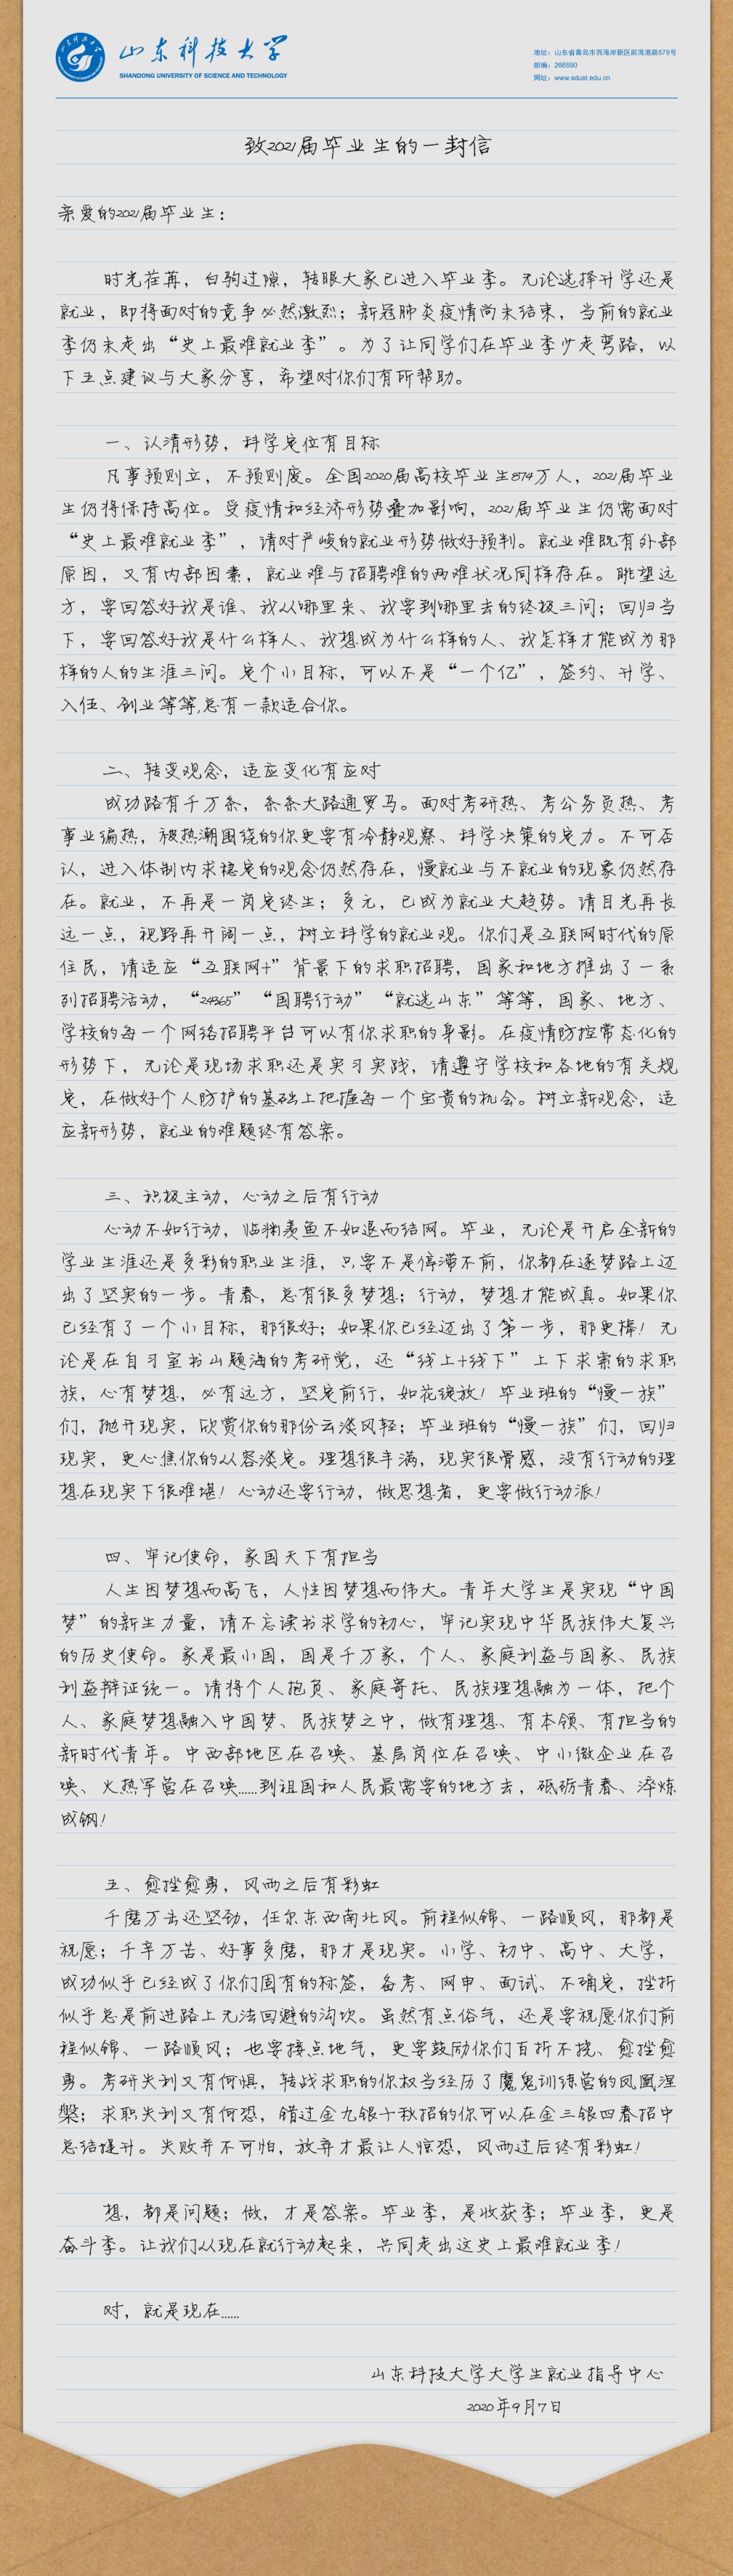 山东科技大学
SHANDONG UNIVERSITY OF SCIENCE AND TECHNOLOGY
地址：山东省青岛市西海岸新区前湾港路579号
邮编：266590
网址：www.sdust.edu.cn
致2021届毕业生的一封信
亲爱的2021届毕业生：
时光荏苒，白驹过隙，转眼大家已进入毕业季。无论选择升学还是
就业，即将面对的竞争必然激烈；新冠肺炎疫情尚未结束，当前的就业
季仍未走出“史上最难就业季”。为了让同学们在毕业季少走弯路，以
下五点建议与大家分享，希望对你们有所帮助。
一、认清形势，科学定位有目标
凡事预则立，不预则废。全国2020届高校毕业生874万人，2021届毕业
生仍将保持高位。受疫情和经济形势叠加影响，2021届毕业生仍需面对
“史上最难就业季”，请对严峻的就业形势做好预判。就业难既有外部
原因，又有内部因素，就业难与招聘难的两难状况同样存在。眺望远
方，要回答好我是谁、我从哪里来、我要到哪里去的终极三问；回归当
下，要回答好我是什么样人、我想成为什么样的人、我怎样才能成为那
样的人的生涯三问。定个小目标，可以不是“一个亿”，签约、升学、
入伍、创业等等,总有一款适合你。
二、转变观念，适应变化有应对
成功路有千万条，条条大路通罗马。面对考研热、考公务员热、考
事业编热，被热潮围绕的你更要有冷静观察、科学决策的定力。不可否
认，进入体制内求稳定的观念仍然存在，慢就业与不就业的现象仍然存
在。就业，不再是一岗定终生；多元，已成为就业大趋势。请目光再长
远一点，视野再开阔一点，树立科学的就业观。你们是互联网时代的原
住民，请适应“互联网+”背景下的求职招聘，国家和地方推出了一系
列招聘活动，“24365”“国聘行动”“就选山东”等等，国家、地方、
学校的每一个网络招聘平台可以有你求职的身影。在疫情防控常态化的
形势下，无论是现场求职还是实习实践，请遵守学校和各地的有关规
定，在做好个人防护的基础上把握每一个宝贵的机会。树立新观念，适
应新形势，就业的难题终有答案。
三、积极主动，心动之后有行动
心动不如行动，临渊羡鱼不如退而结网。毕业，无论是开启全新的
学业生涯还是多彩的职业生涯，只要不是停滞不前，你都在逐梦路上迈
出了坚实的一步。青春，总有很多梦想；行动，梦想才能成真。如果你
已经有了一个小目标，那很好；如果你已经迈出了第一步，那更棒！无
论是在自习室书山题海的考研党，还“线上+线下”上下求索的求职
族，心有梦想，必有远方，坚定前行，如花绽放！毕业班的“慢一族”
们，抛开现实，欣赏你的那份云淡风轻；毕业班的“慢一族”们，回归
现实，更心焦你的从容淡定。理想很丰满，现实很骨感，没有行动的理
想在现实下很难堪！心动还要行动，做思想者，更要做行动派！
四、牢记使命，家国天下有担当
人生因梦想而高飞，人性因梦想而伟大。青年大学生是实现“中国
梦”的新生力量，请不忘读书求学的初心，牢记实现中华民族伟大复兴
的历史使命。家是最小国，国是千万家，个人、家庭利益与国家、民族
利益辩证统一。请将个人抱负、家庭寄托、民族理想融为一体，把个
人、家庭梦想融入中国梦、民族梦之中，做有理想、有本领、有担当的
新时代青年。中西部地区在召唤、基层岗位在召唤、中小微企业在召
唤、火热军营在召唤......到祖国和人民最需要的地方去，砥砺青春、淬炼
成钢！
五、愈挫愈勇，风雨之后有彩虹
千磨万击还坚劲，任尔东西南北风。前程似锦、一路顺风，那都是
祝愿；千辛万苦、好事多磨，那才是现实。小学、初中、高中、大学，
成功似乎已经成了你们固有的标签，备考、网申、面试、不确定，挫折
似乎总是前进路上无法回避的沟坎。虽然有点俗气，还是要祝愿你们前
程似锦、一路顺风；也要接点地气，更要鼓励你们百折不挠、愈挫愈
勇。考研失利又有何惧，转战求职的你权当经历了魔鬼训练营的凤凰涅
槃；求职失利又有何恐，错过金九银十秋招的你可以在金三银四春招中
总结提升。失败并不可怕，放弃才最让人惊恐，风雨过后终有彩虹！
想，都是问题；做，才是答案。毕业季，是收获季；毕业季，更是
奋斗季。让我们从现在就行动起来，共同走出这史上最难就业季！
对，就是现在......
山东科技大学大学生就业指导中心
2020年9月7日